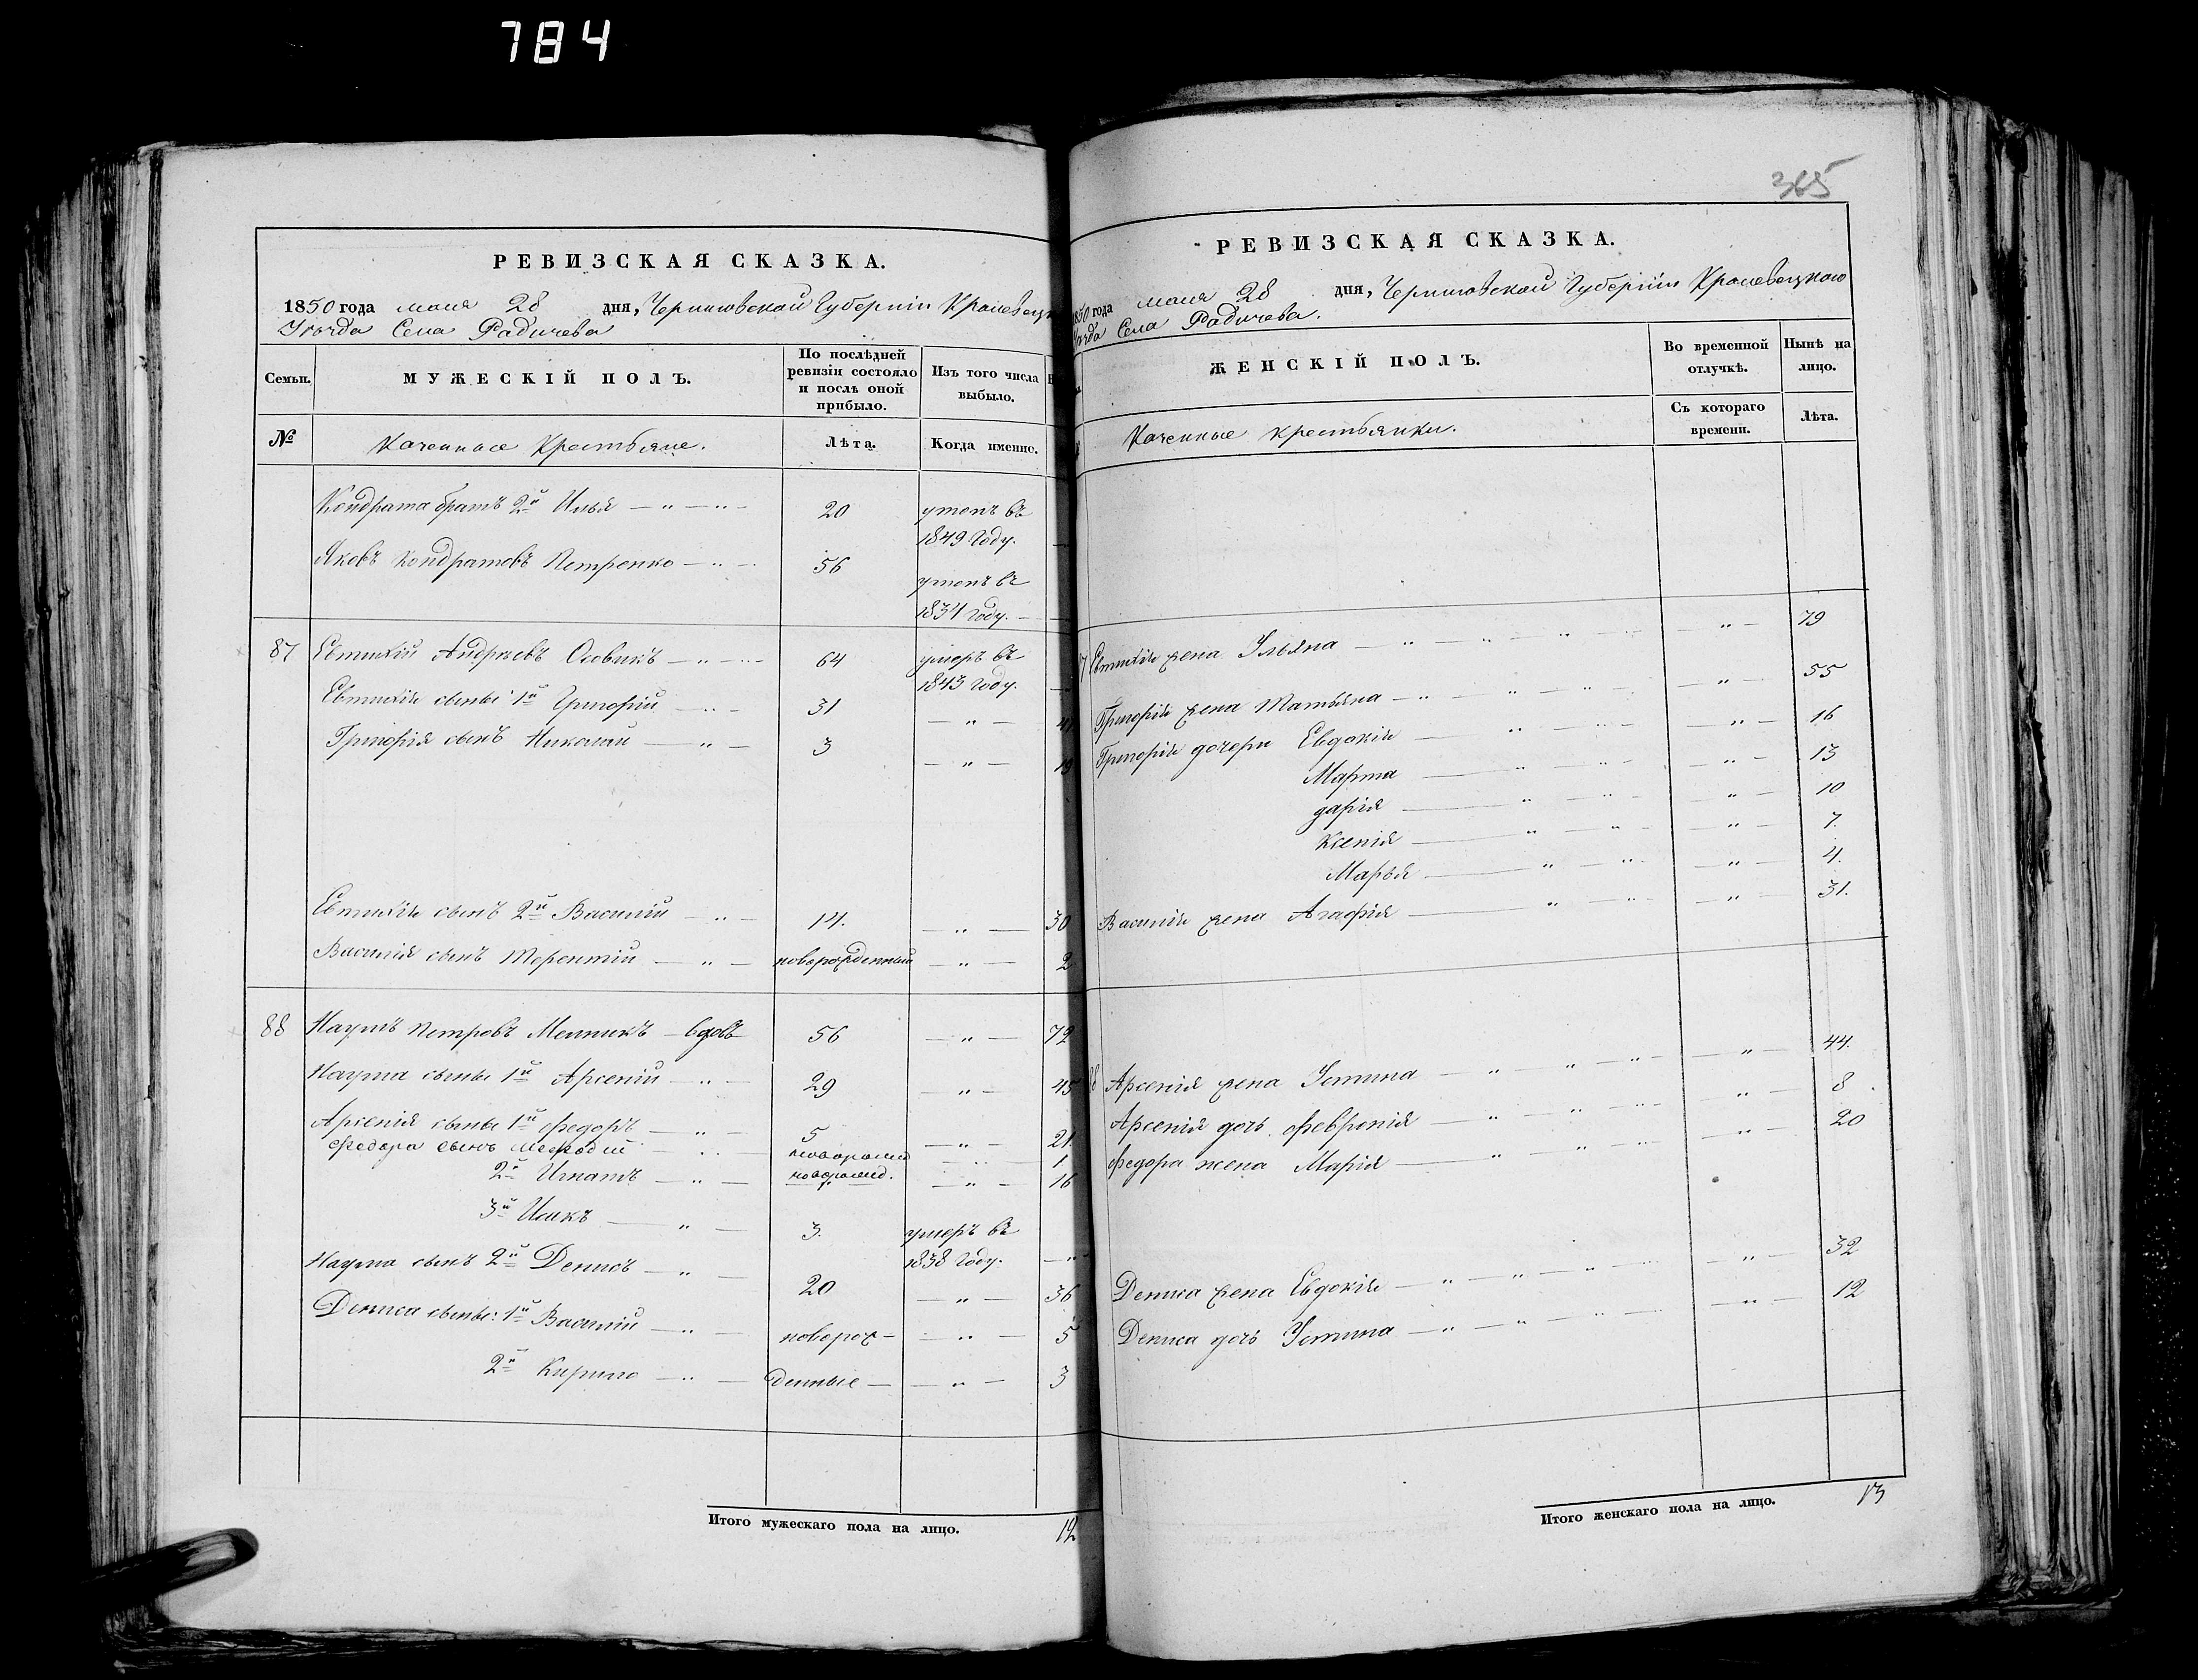 784
РЕВИЗСКАЯ СКАЗКА.
1850 года мая 28 дня, Черниговской Губернiи Кролевец
Уѣзда Села Радичева
Семьи.
МУЖЕСКIЙ ПОЛЪ.
По послѣдней ревизiи состояло и послѣ оной прибыло.
Изъ того числа выбыло.
№
Казенные Крестьяне.
Лѣта.
Когда именно.
Кондрата братъ 2й Илья — " — " — 20 утопъ въ
1849 Году.
Яковъ Кондратовъ Петренко — " — 56
1834 Году. —
87 Евтихiй Андрѣевъ Осовикъ — " — 64 умеръ въ
1843 Году.
Евтихiя сыны 1й Григорiй — " — 31 — " — 4
Григорiя сынъ Николай — " — 3 — " — 19
Евтихiя сынъ 2й Василiй — " — 14. — " — 30
Василiя сынъ Терентiй — " — новорожденный — " — 2
88 Наумъ Петровъ Мелникъ — вдовъ 56 — " — 72
Наума сыны 1й Арсенiй — " — 29 — " — 45
Арсенiя сыны 1й Федоръ — " — 5 — " — 21
Федора сынъ Мефодiй — " — новорожд — " — 1
2й Игнатъ — " — новорожд. — " — 16
3й Исакъ — " — 3. умеръ въ
1838 Году. — " —
Наума сынъ 2й Денисъ — " — 20 — " — 36
Дениса сыны: 1й Василiй — " — новорож- — " — 5
2й Кирило — " — денные — — " — 3
Итого мужескаго пола на лицо. 12
365
РЕВИЗСКАЯ СКАЗКА.
1850 года мая 28 дня, Черниговской Губернiи Кролевецкого
Уѣзда Села Радичева.
ЖЕНСКIЙ ПОЛЪ.
Во временной отлучкѣ.
Нынѣ на лицо.
Казенные крестьянки.
Съ котораго времени.
Лѣта.
Евтихiя жена Ульяна — " — " — 79
Григорiя жена Татьяна — " — " — 55
Григорiя дочери Евдокiя — " — " — 16
Марта — " — " — 13
Дарiя — " — " — 10
Ксенiя — " — " — 7.
Марья — " — " — 4.
Василiя жена Агафiя — " — " — 31.
88 Арсенiя жена Устина — " — " — 44.
Арсенiя дочь Февронiя — " — " — 8
Федора жена Марiя — " — " — 20
Дениса жена Евдокiя — " — " — 32
Дениса дочь Устина — " — " — 12
Итого женскаго пола на лицо. 13